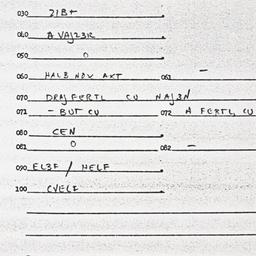 030 ZIBT
060 A VAJZ3R
050 0
060 HALB NOV AXT 061 -
070 DRAJFERTL CU NAJ3N
071 - BUT CU 072 A FERTL CU
080 CEN
081 0 082 -
090 ELEF / HELF
100 CVELF